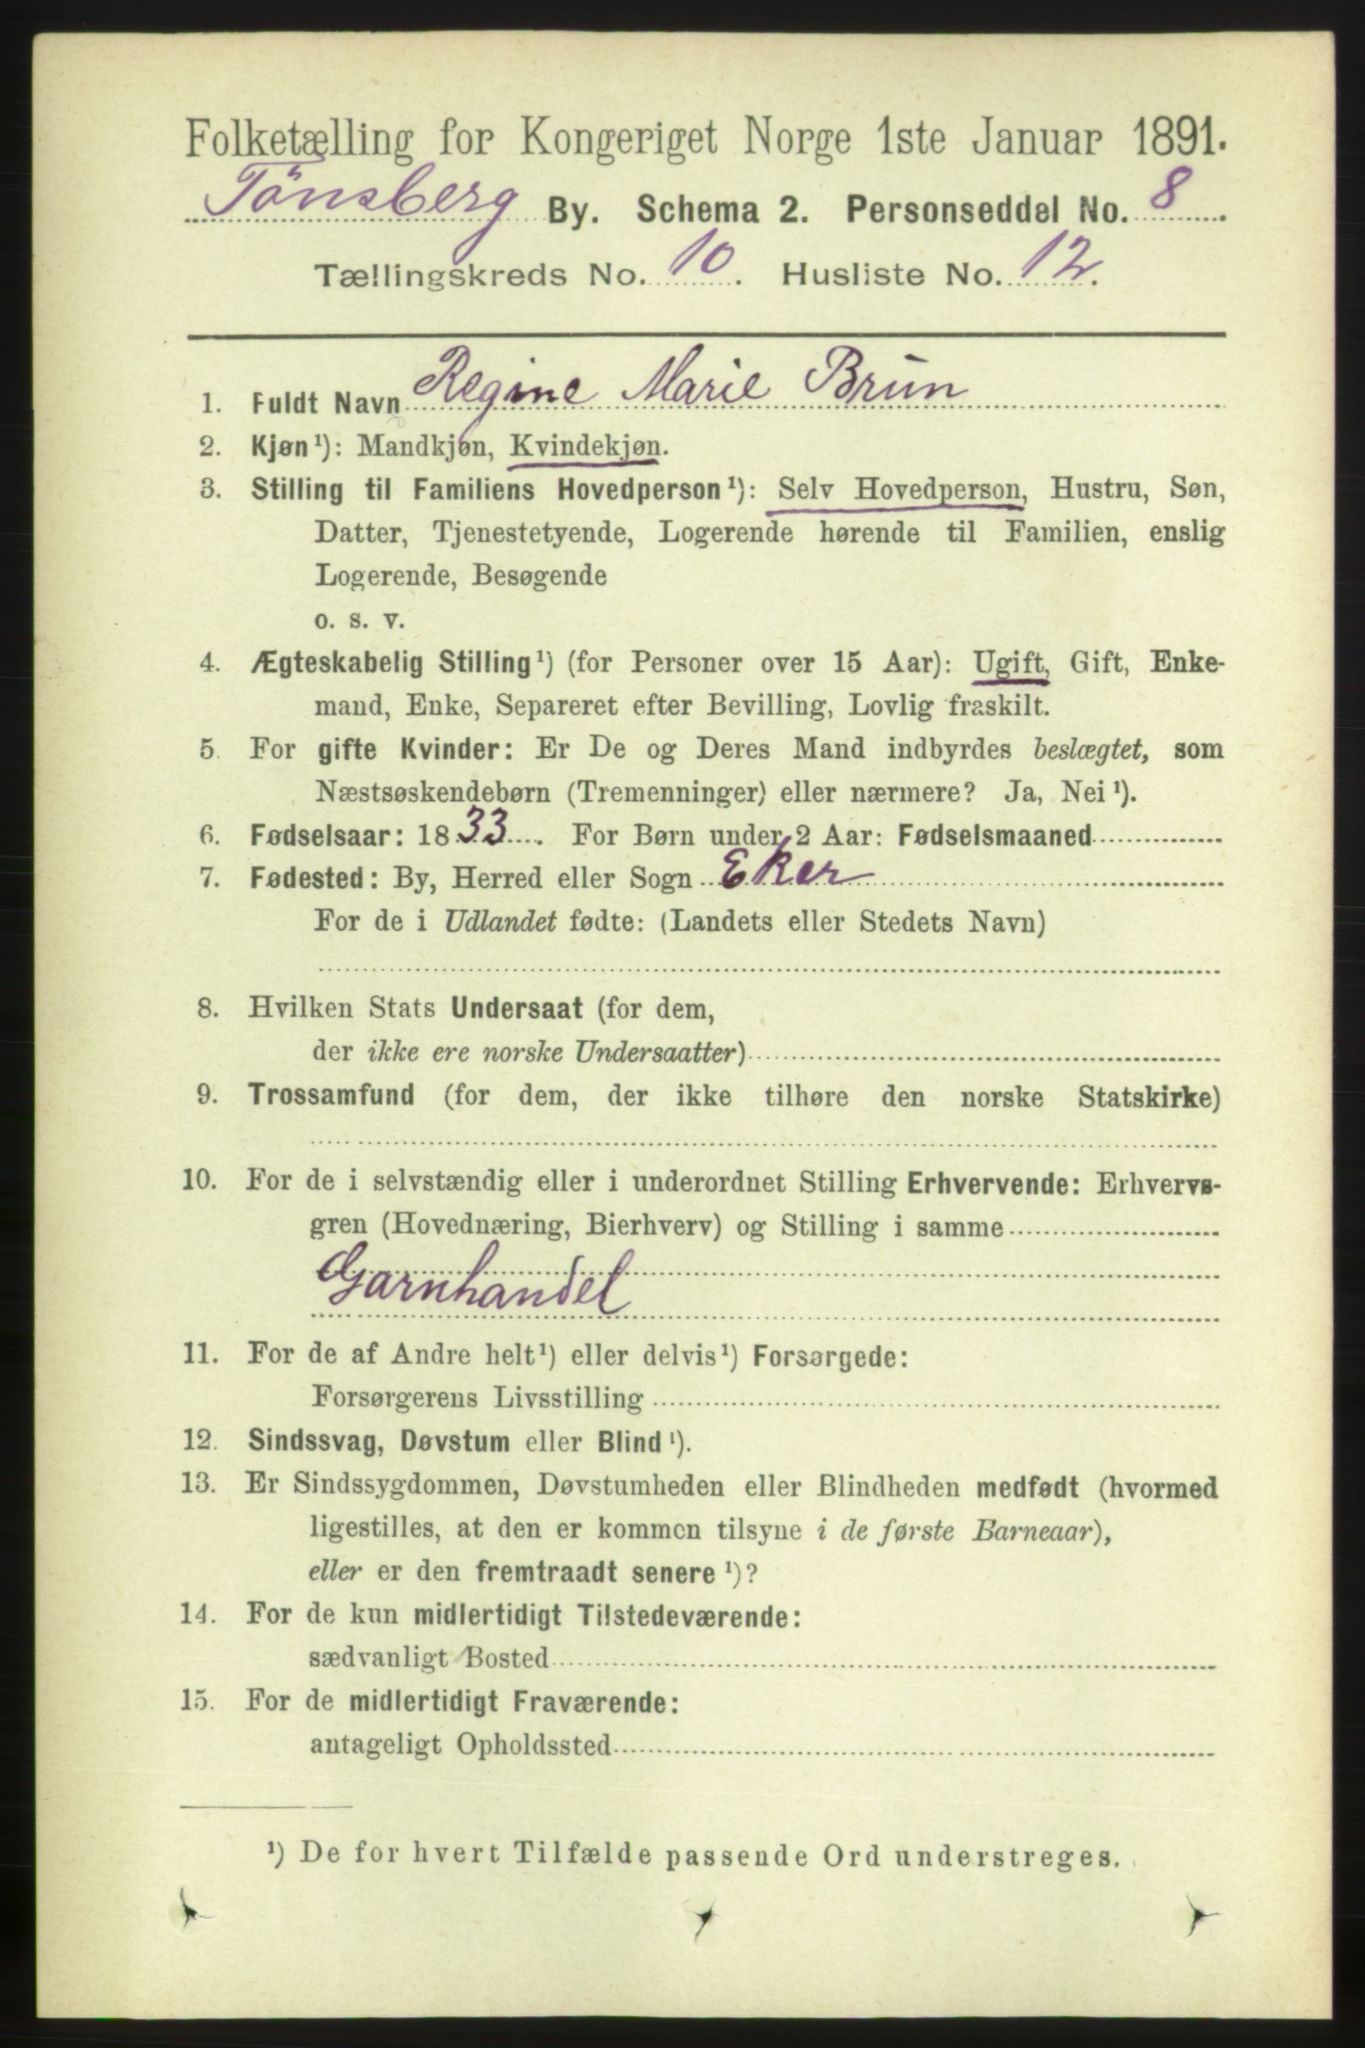 Folketælling for Kongeriget Norge 1ste Januar 1891.
Tönsberg By. Schema 2. Personseddel No. 8.
Tællingskreds No. 10. Husliste No. 12.
1. Fuldt Navn Regine Marie Brun
2. Kjøn¹): Mandkjøn, Kvindekjøn.
3. Stilling til Familiens Hovedperson¹): Selv Hovedperson, Hustru, Søn,
Datter, Tjenestetyende, Logerende hørende til Familien, enslig
Logerende, Besøgende
o. s. v.
4. Ægteskabelig Stilling¹) (for Personer over 15 Aar): Ugift, Gift, Enke-
mand, Enke, Separeret efter Bevilling, Lovlig fraskilt.
5. For gifte Kvinder: Er De og Deres Mand indbyrdes beslægtet, som
Næstsøskendebørn (Tremenninger) eller nærmere? Ja, Nei¹).
6. Fødselsaar: 1833. For Børn under 2 Aar: Fødselsmaaned
7. Fødested: By, Herred eller Sogn Eker
For de i Udlandet fødte: (Landets eller Stedets Navn)
8. Hvilken Stats Undersaat (for dem,
der ikke ere norske Undersaatter)
9. Trossamfund (for dem, der ikke tilhøre den norske Statskirke)
10. For de i selvstændig eller i underordnet Stilling Erhvervende: Erhvervs-
gren (Hovednæring, Bierhverv) og Stilling i samme
Garnhandel
11. For de af Andre helt¹) eller delvis¹) Forsørgede:
Forsørgerens Livsstilling
12. Sindssvag, Døvstum eller Blind¹).
13. Er Sindssygdommen, Døvstumheden eller Blindheden medfødt (hvormed
ligestilles, at den er kommen tilsyne i de første Barneaar),
eller er den fremtraadt senere¹)?
14. For de kun midlertidigt Tilstedeværende:
sædvanligt Bosted
15. For de midlertidigt Fraværende:
antageligt Opholdssted
¹) De for hvert Tilfælde passende Ord understreges.